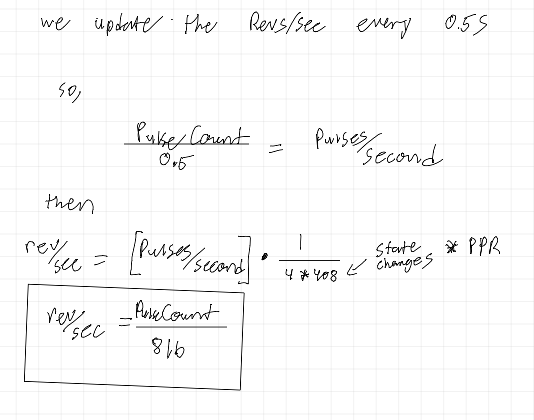 we update the Revs/sec every 0.5s
so,
PulseCount / 0.5 = Pulses/second
then
rev/sec = [Pulses/second] • 1 / 4 * 408 ↙ state changes * PPR
rev/sec = PulseCount / 816